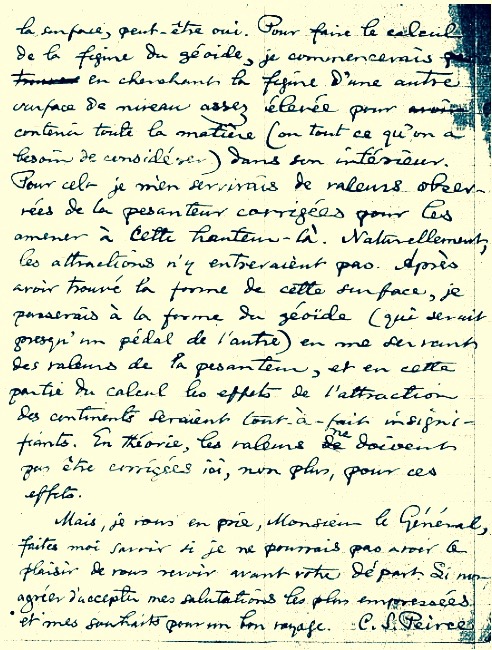 la surface, peut-être oui. Pour faire le calcul
de la figure du géoide, je commencerais
en cherchant la figure d'une autre
surface de niveau assez élevée pour
contenir toute la matière (ou tout ce qu'on a
besoin de considérer) dans son intérieur.
Pour cela je m'en servirais de valeurs obser-
vées de la pesanteur corrigées pour les
amener à cette hauteur-là. Naturellement,
les attractions n'y entreraient pas. Après
avoir trouvé la forme de cette surface, je
passerais à la forme du géoïde (qui serait
presqu'un pédal de l'autre) en me servant
des valeurs de la pesanteur, et en cette
partie du calcul les effets de l'attraction
des continents seraient tout-à-fait insigni-
fiants. En théorie, les valeurs ne doivent
pas être corrigées ici, non plus, pour ces
effets.
Mais, je vous en prie, Monsieur le Général,
faites moi savoir si je ne pourrais pas avoir le
plaisir de vous revoir avant votre départ. Si non
agréer d'accepter mes salutations les plus empressées
et mes souhaits pour un bon voyage. C. S. Peirce